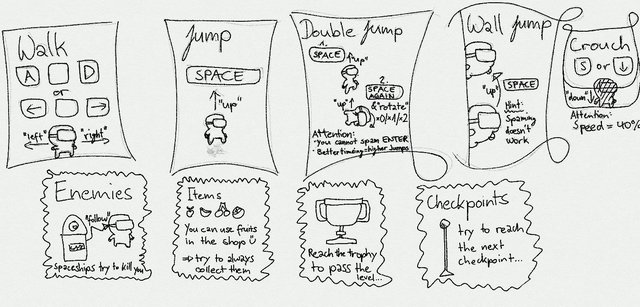 Walk
A D
or
← →
"left" "right"
Jump
SPACE
"up"
Double Jump
1.
SPACE
"up"
2.
SPACE
AGAIN
"up" & "rotate"
Attention:
-You cannot spam ENTER
-Better timing=higher Jumps
Wall Jump
"up"
SPACE
Hint:
Spaming
doesn't
work
Crouch
S or ↓
"down"
Attention:
Speed = 40%
Enemies
"follow"
Spaceships try to kill you
Items
You can use fruits
in the shop
⇒ try to always
collect them
Reach the trophy
to pass the
level...
Checkpoints
try to reach
the next
checkpoint...